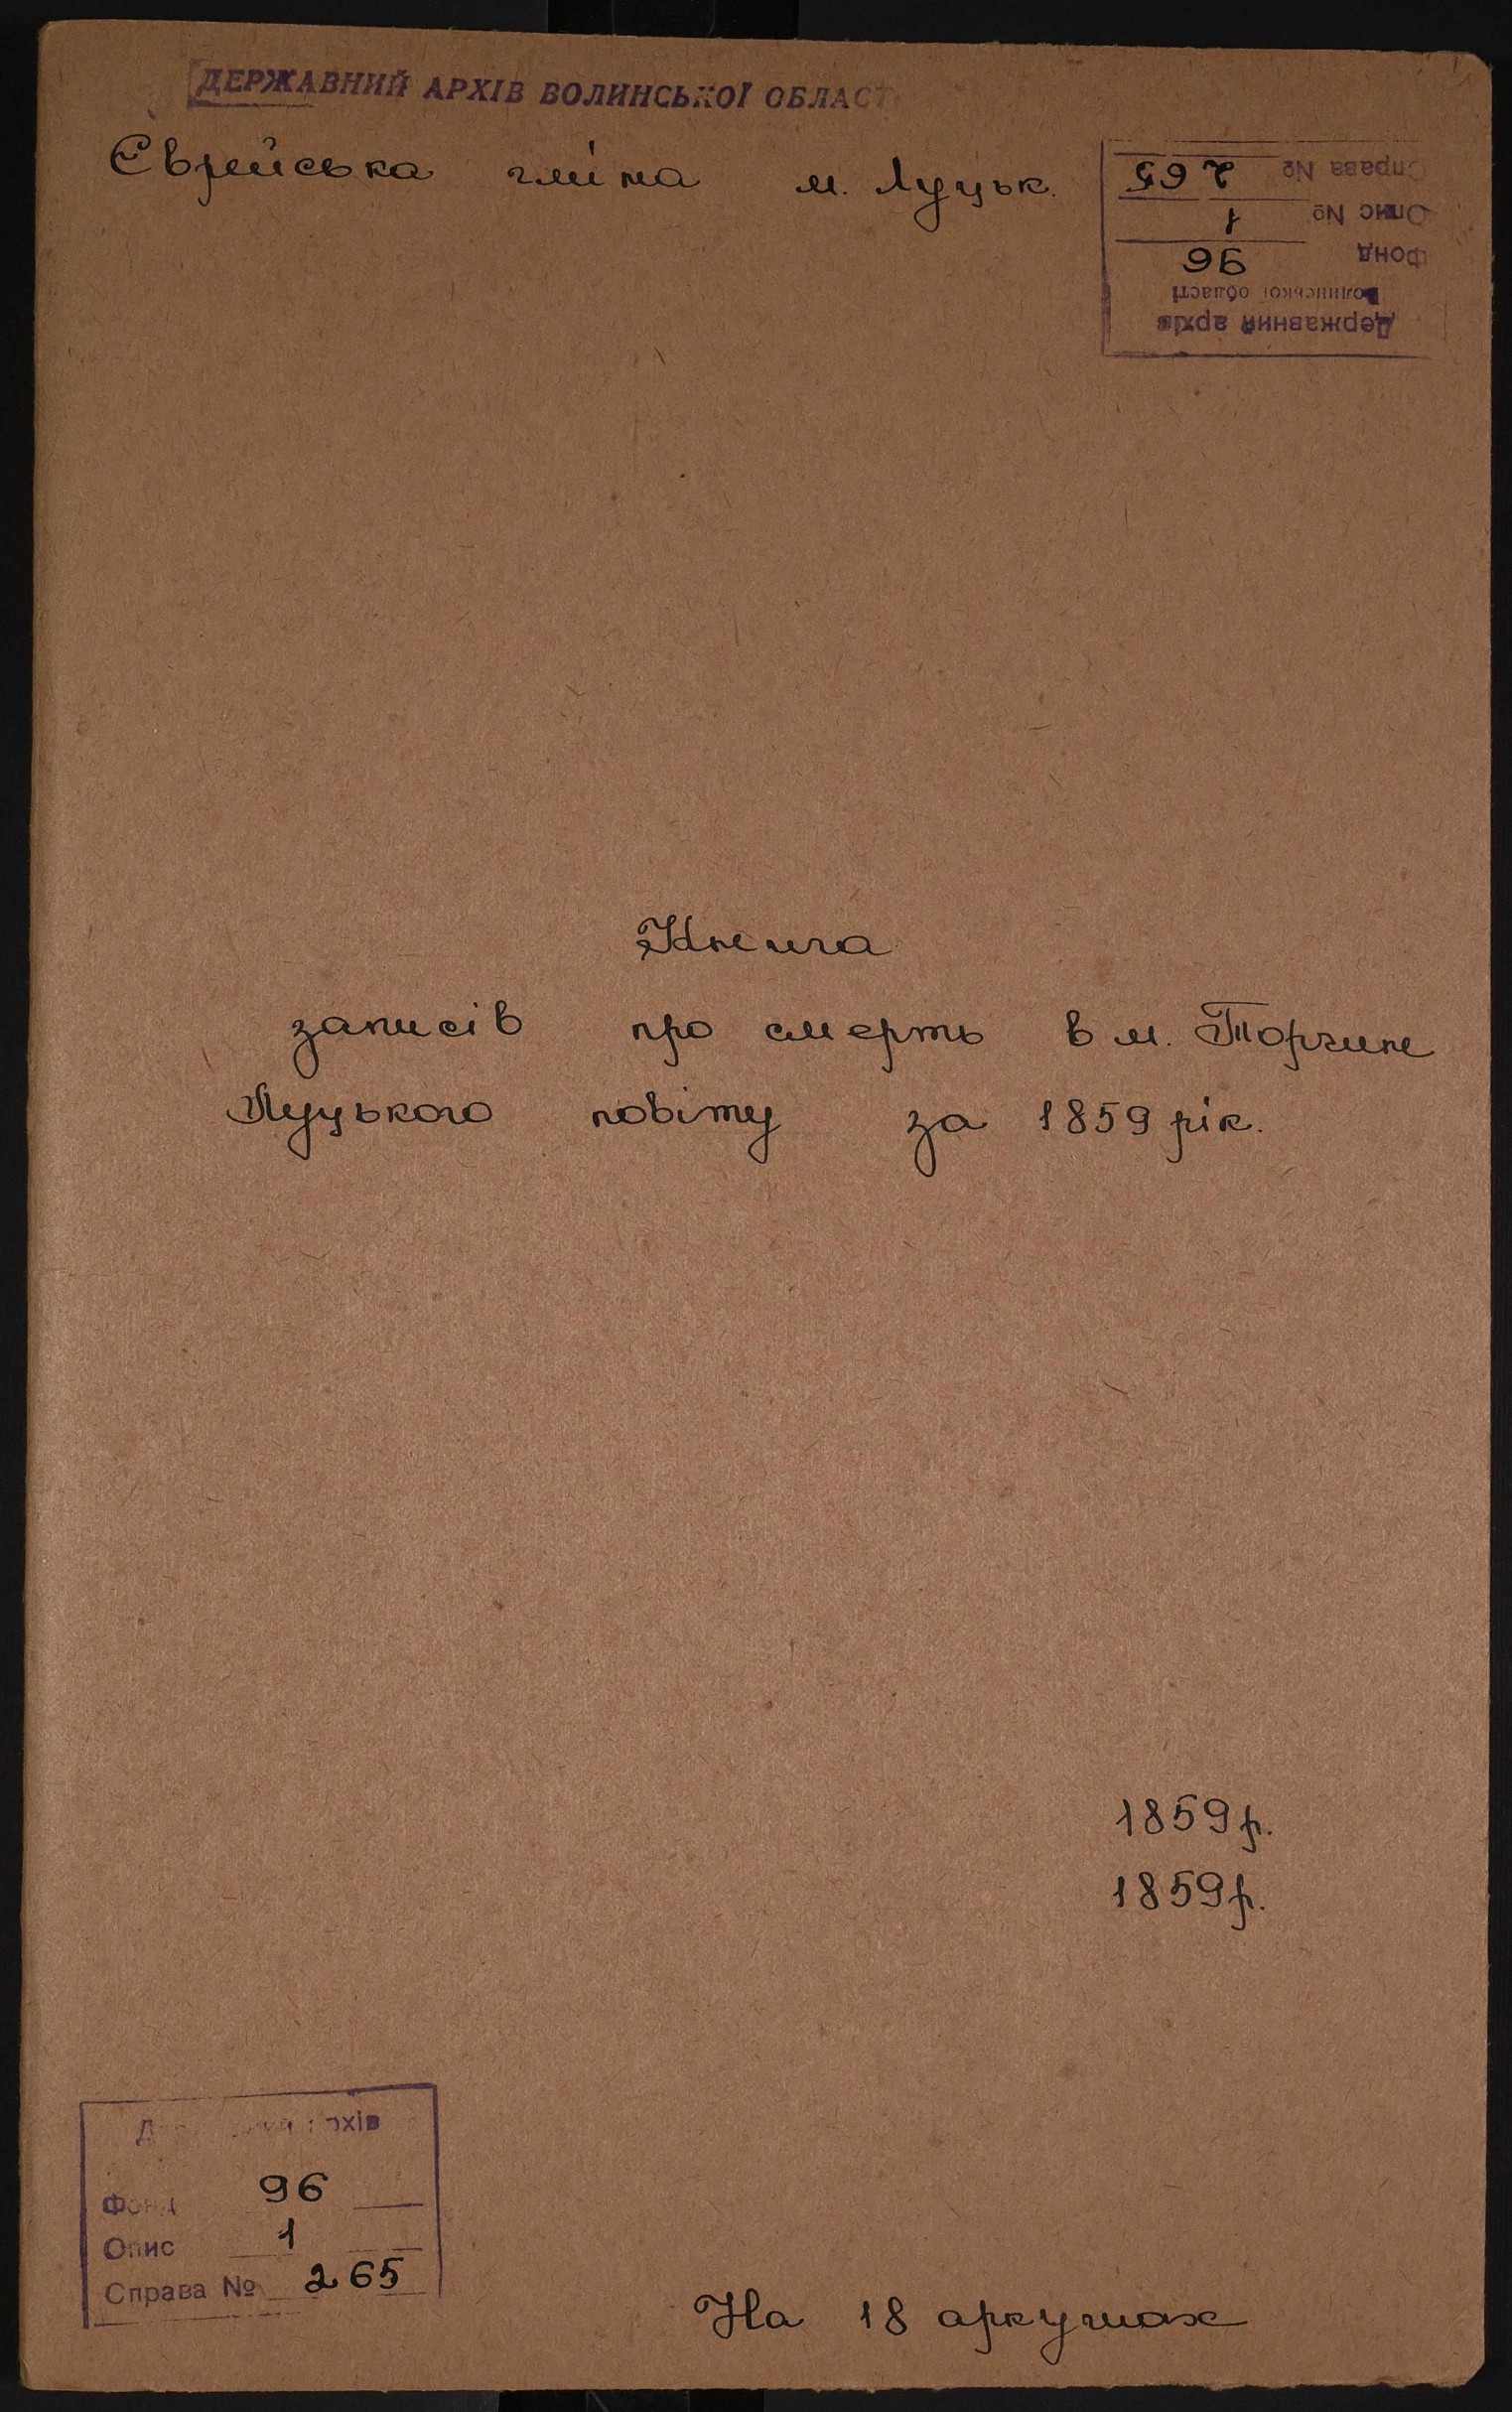 ДЕРЖАВНИЙ АРХІВ ВОЛИНСЬКОЇ ОБЛАСТ
Єврейська гміна м. Луцьк.
Державний архів
Волинської області
Фонд 96
Опис № 1
Справа № 265
Книга
записів про смерть в м. Торчине
Луцького повіту за 1859 рік.
1859 р.
1859 р.
Фонд 96
Опис 1
Справа № 265
На 18 аркушах